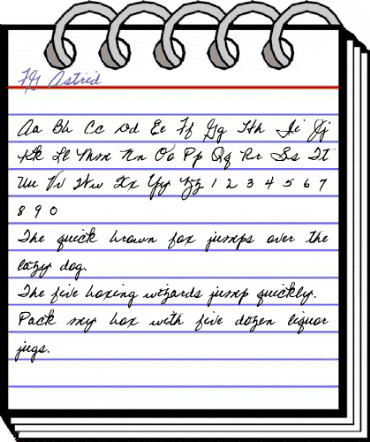 FG Astrid
Aa Bb Cc Dd Ee Ff Gg Hh Ii Jj
Kk Ll Mm Nn Oo Pp Qq Rr Ss Tt
Uu Vv Ww Xx Yy Zz 1 2 3 4 5 6 7
8 9 0
The quick brown fox jumps over the
lazy dog.
The five boxing wizards jump quickly.
Pack my box with five dozen liquor
jugs.